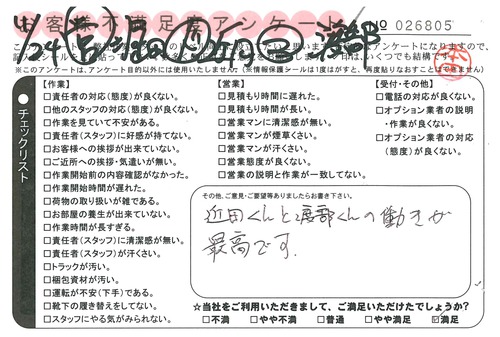 お客様不満足度アンケート
№ 026805
※このアンケートは、アンケート目的以外には使用いたしません。(※情報保護シールは1度はがすと、再度貼りなおすことはできません)
チェックリスト
【作業】
□責任者の対応(態度)が良くない。
□他のスタッフの対応(態度)が良くない。
□作業を見ていて不安がある。
□責任者(スタッフ)に好感が持てない。
□お客様への挨拶が出来ていない。
□ご近所への挨拶・気遣いが無い。
□作業開始前の内容確認がなかった。
□作業開始時間が遅れた。
□荷物の取り扱いが雑である。
□お部屋の養生が出来ていない。
□作業時間が長すぎる。
□責任者(スタッフ)に清潔感が無い。
□責任者(スタッフ)が汗くさい。
□トラックが汚い。
□梱包資材が汚い。
□運転が不安(下手)である。
□靴下の履き替えをしてない。
□スタッフにやる気がみられない。
【営業】
□見積もり時間に遅れた。
□見積もり時間が長い。
□営業マンに清潔感が無い。
□営業マンが煙草くさい。
□営業マンが汗くさい。
□営業態度が良くない。
□営業の説明と作業が一致してない。
【受付・その他】
□電話の対応が良くない。
□オプション業者の説明
・作業が良くない。
□オプション業者の対応
(態度)が良くない。
その他、ご意見・ご要望等ありましたらお書き下さい。
近田くんと渡部くんの働きが
最高です.
☆当社をご利用いただきまして、ご満足いただけたでしょうか?
□不満 □やや不満 □普通 □やや満足 ☑満足